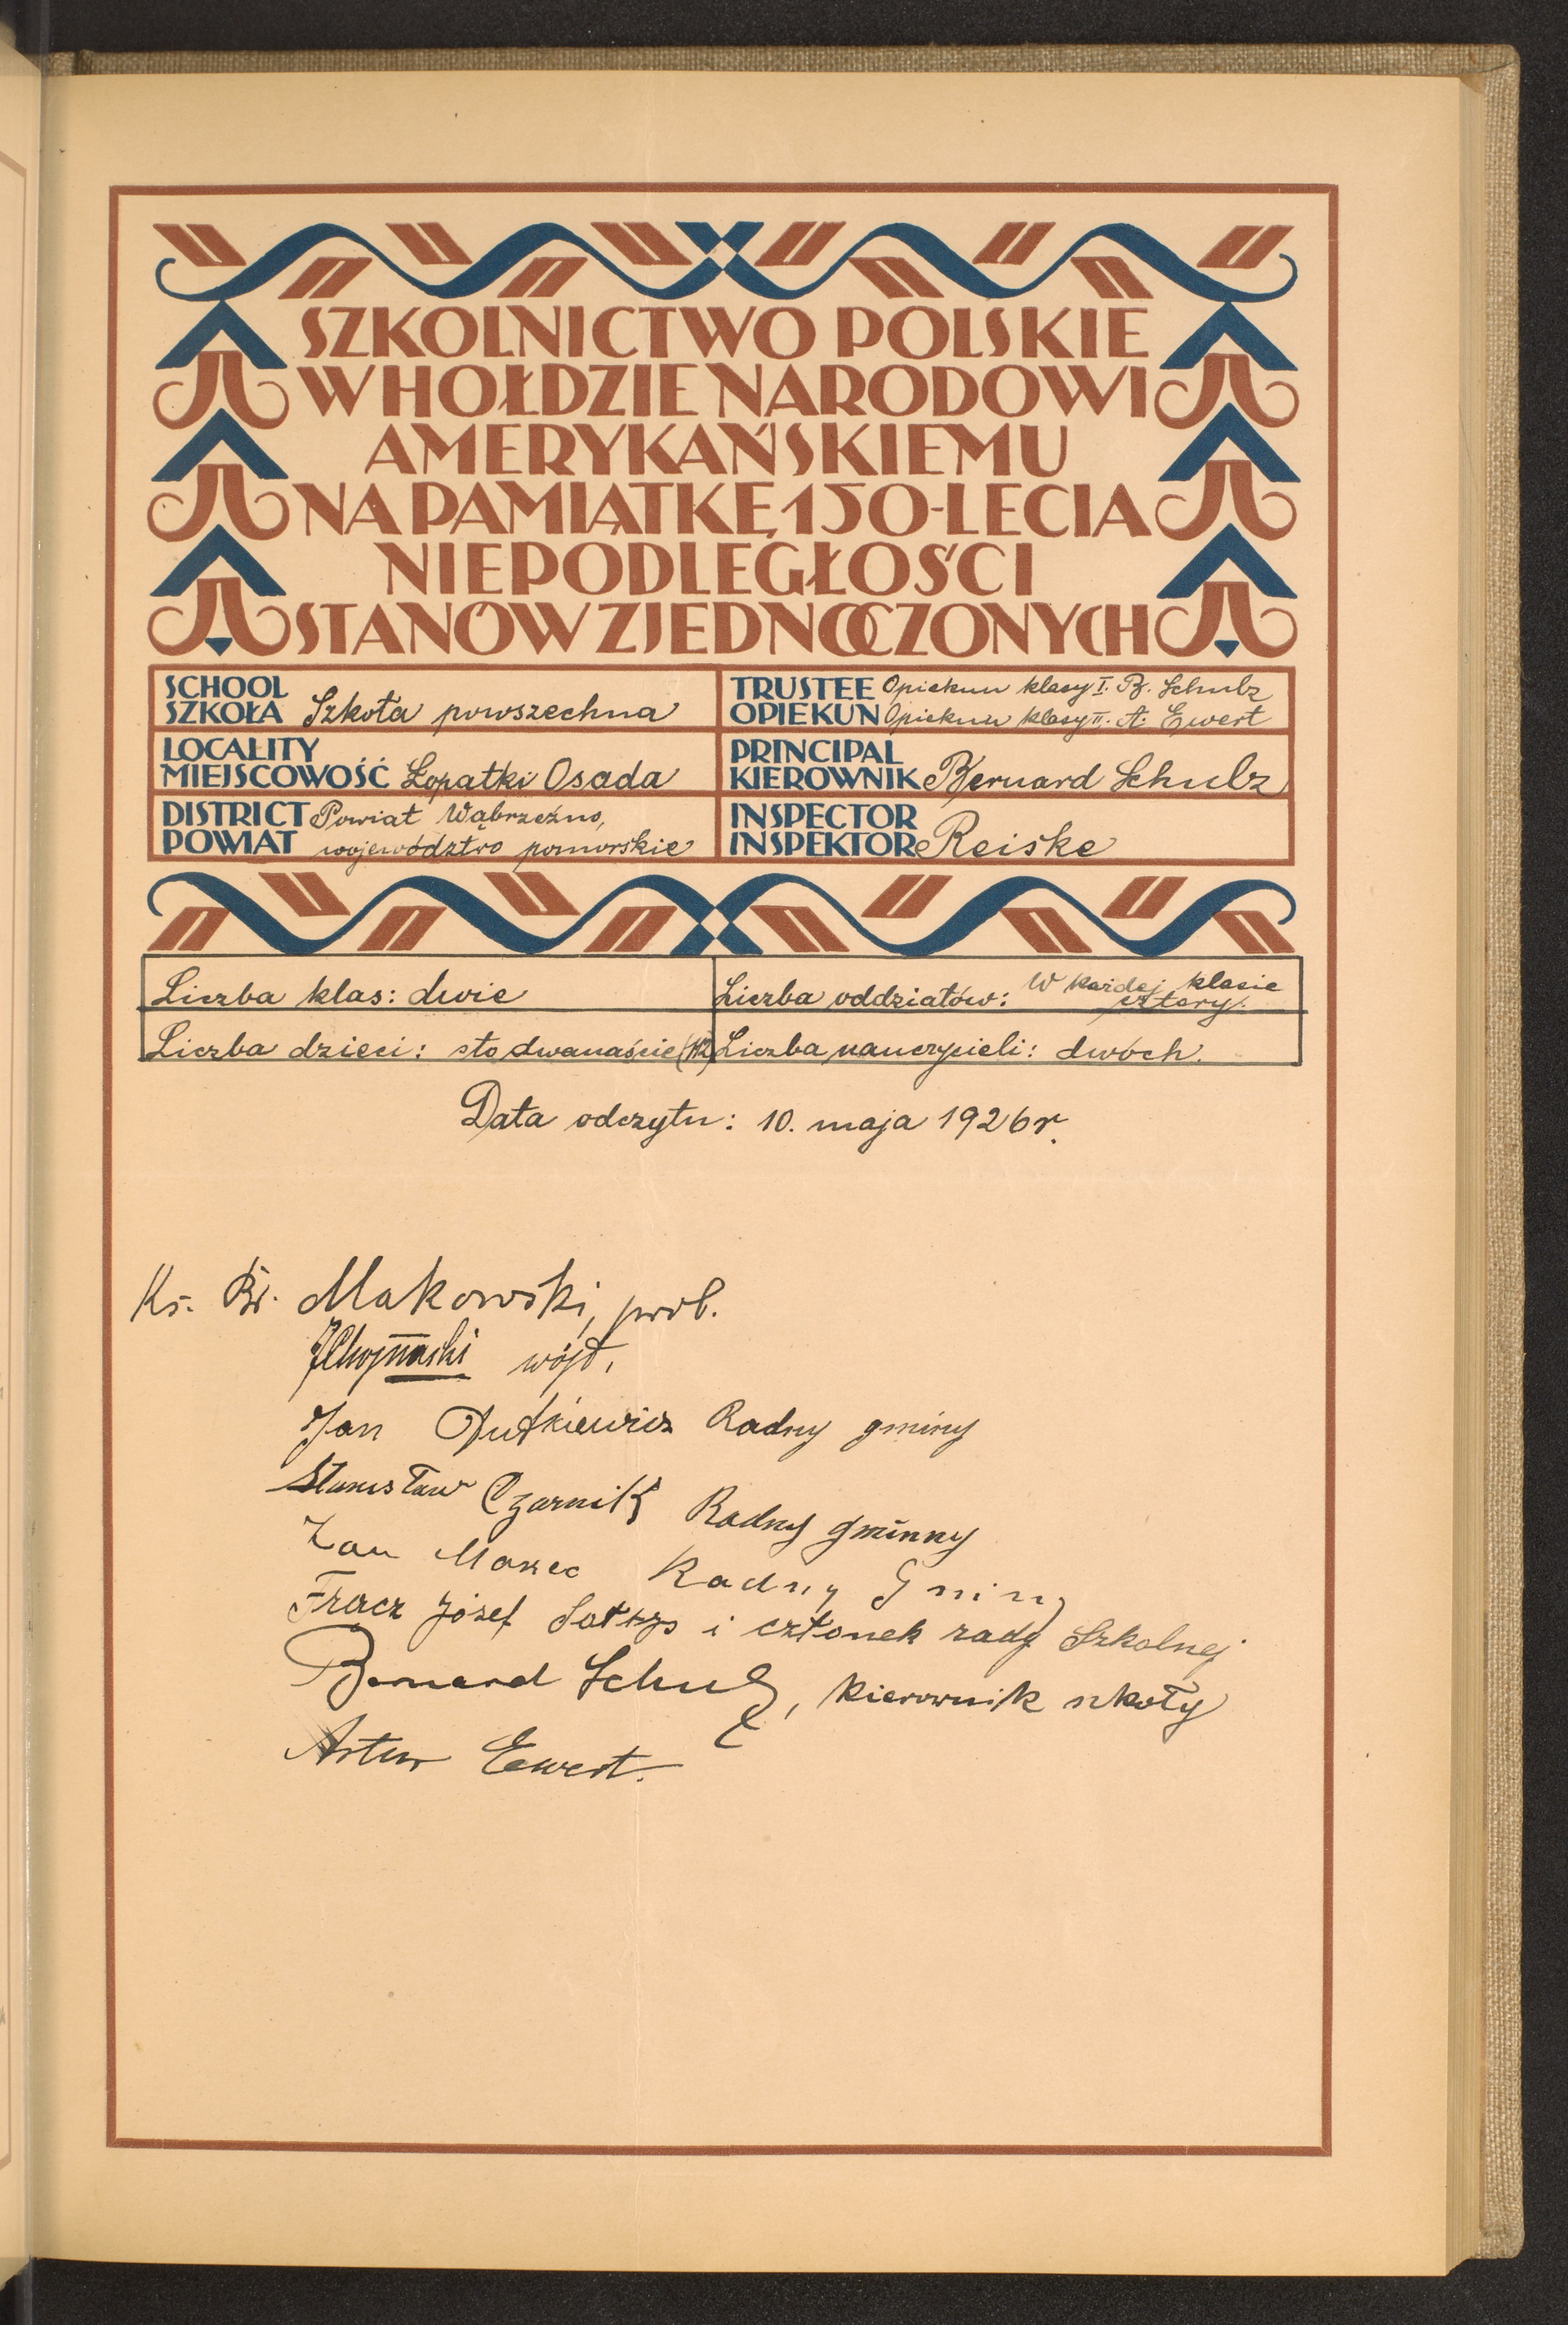 SZKOLNICTWO POLSKIE
W HOŁDZIE NARODOWI
AMERYKAŃSKIEMU
NA PAMIĄTKĘ 150-LECIA
NIEPODLEGŁOŚCI
STANÓW ZJEDNOCZONYCH
SCHOOL
SZKOŁA Szkoła powszechna
TRUSTEE Opiekun klasy I. B. Schulz
OPIEKUN Opiekun klasy II. A. Ewert
LOCALITY
MIEJSCOWOŚĆ Łopatki Osada
PRINCIPAL
KIEROWNIK Bernard Schulz
DISTRICT Powiat Wąbrzeźno,
POWIAT województwo pomorskie
INSPECTOR
INSPEKTOR Reiske
Liczba klas: dwie
Liczba oddziałów: W każdej klasie
cztery.
Liczba dzieci: sto dwanaście (112)
Liczba nauczycieli: dwóch.
Data odczytu: 10. maja 1926 r.
Ks. Br. Makowski, prob.
wójt.
Jan Dutkiewicz Radny gminy
Stanisław Czarnik Radny gminny
Jan Marzec Radny Gminy
Frącz Józef Sołtys i członek rady Szkolnej
Bernard Schulz, kierownik szkoły
Artur Ewert.